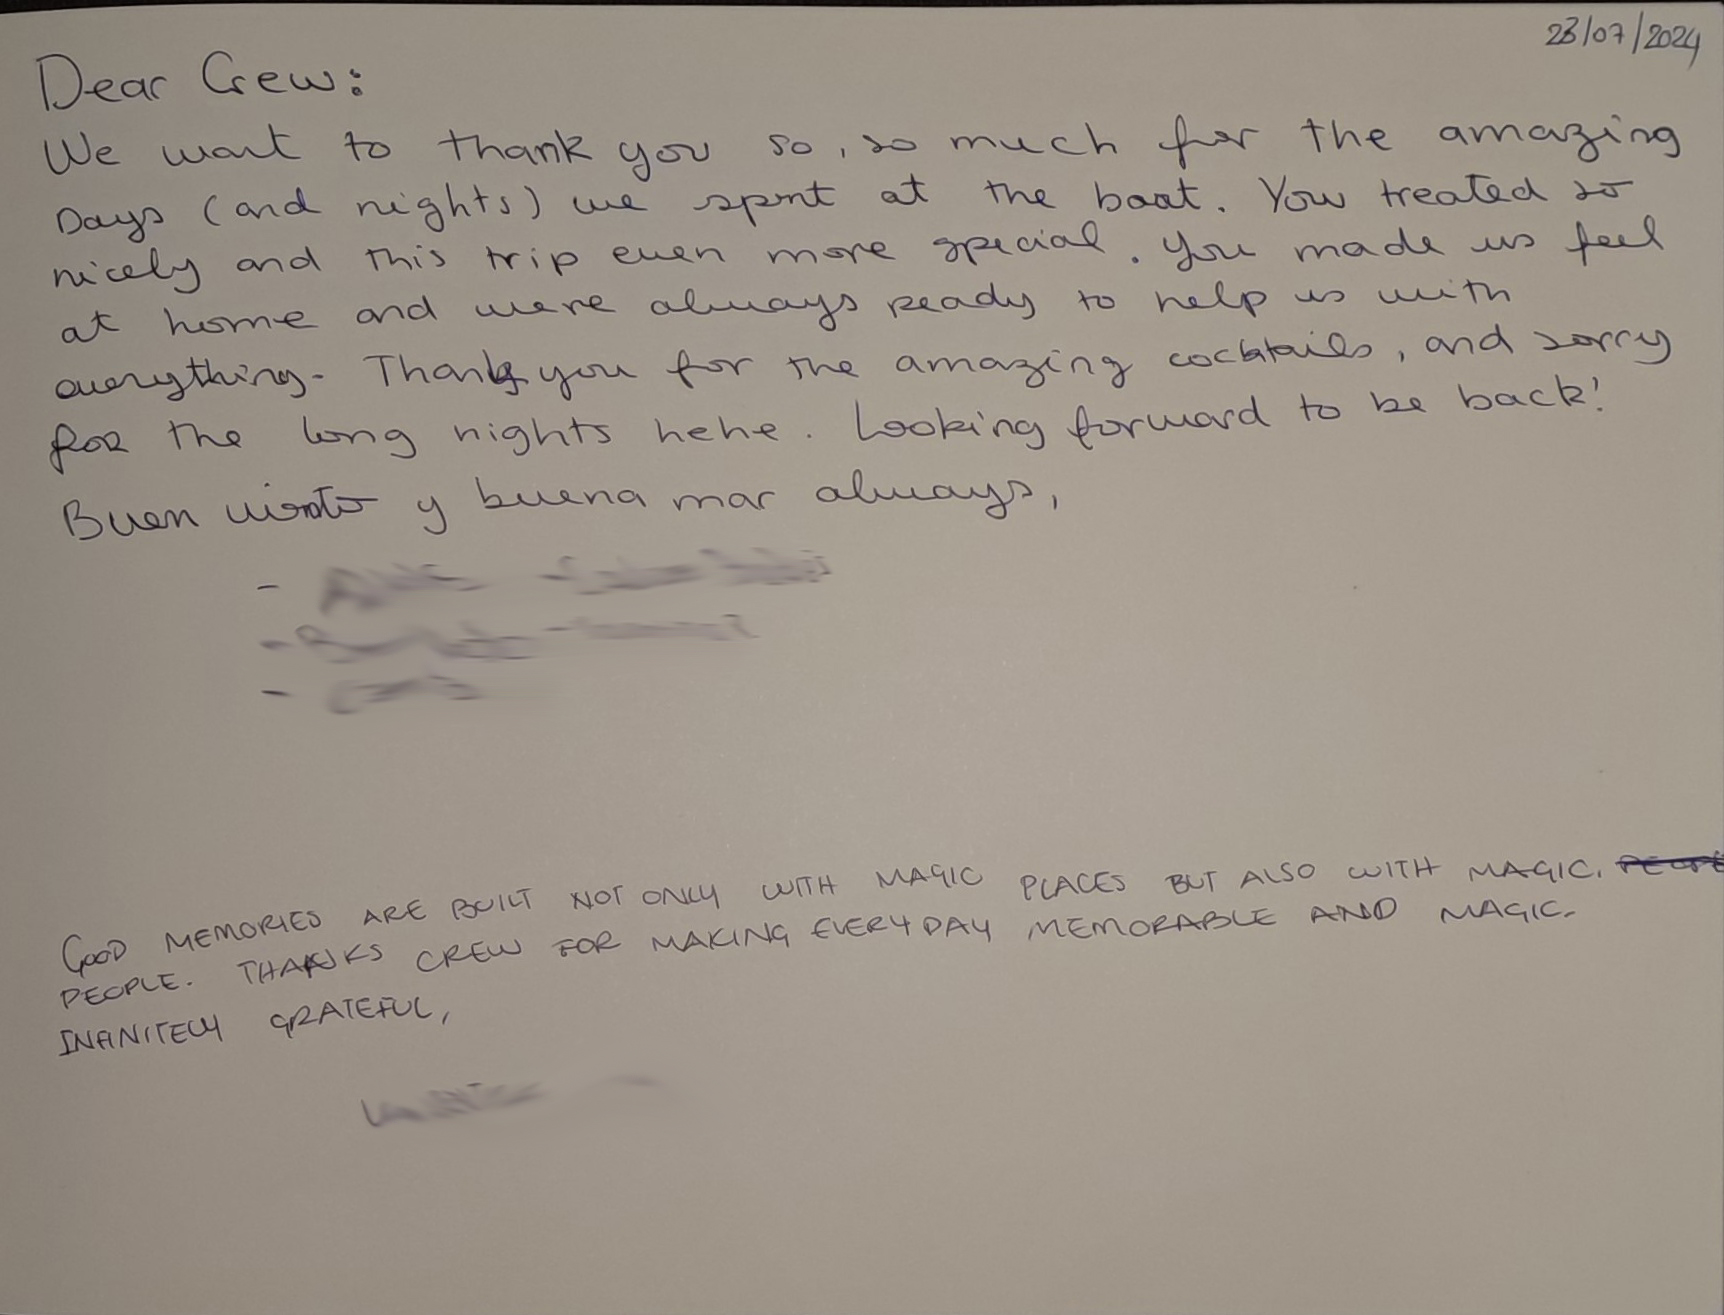 23/07/2024
Dear Crew:
We want to thank you so, so much for the amazing
Days (and nights) we spent at the boat. You treated so
nicely and this trip even more special. You made us feel
at home and were always ready to help us with
everything. Thank you for the amazing cocktails, and sorry
for the long nights hehe. Looking forward to be back!
Buen viento y buena mar always,
GOOD MEMORIES ARE BUILT NOT ONLY WITH MAGIC PLACES BUT ALSO WITH MAGIC.
PEOPLE. THANKS CREW FOR MAKING EVERYDAY MEMORABLE AND MAGIC.
INFINITELY GRATEFUL,